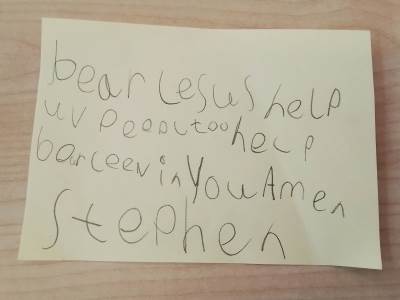 bear Lesus help
uv peepl too help
barleev in You Amen
Stephen